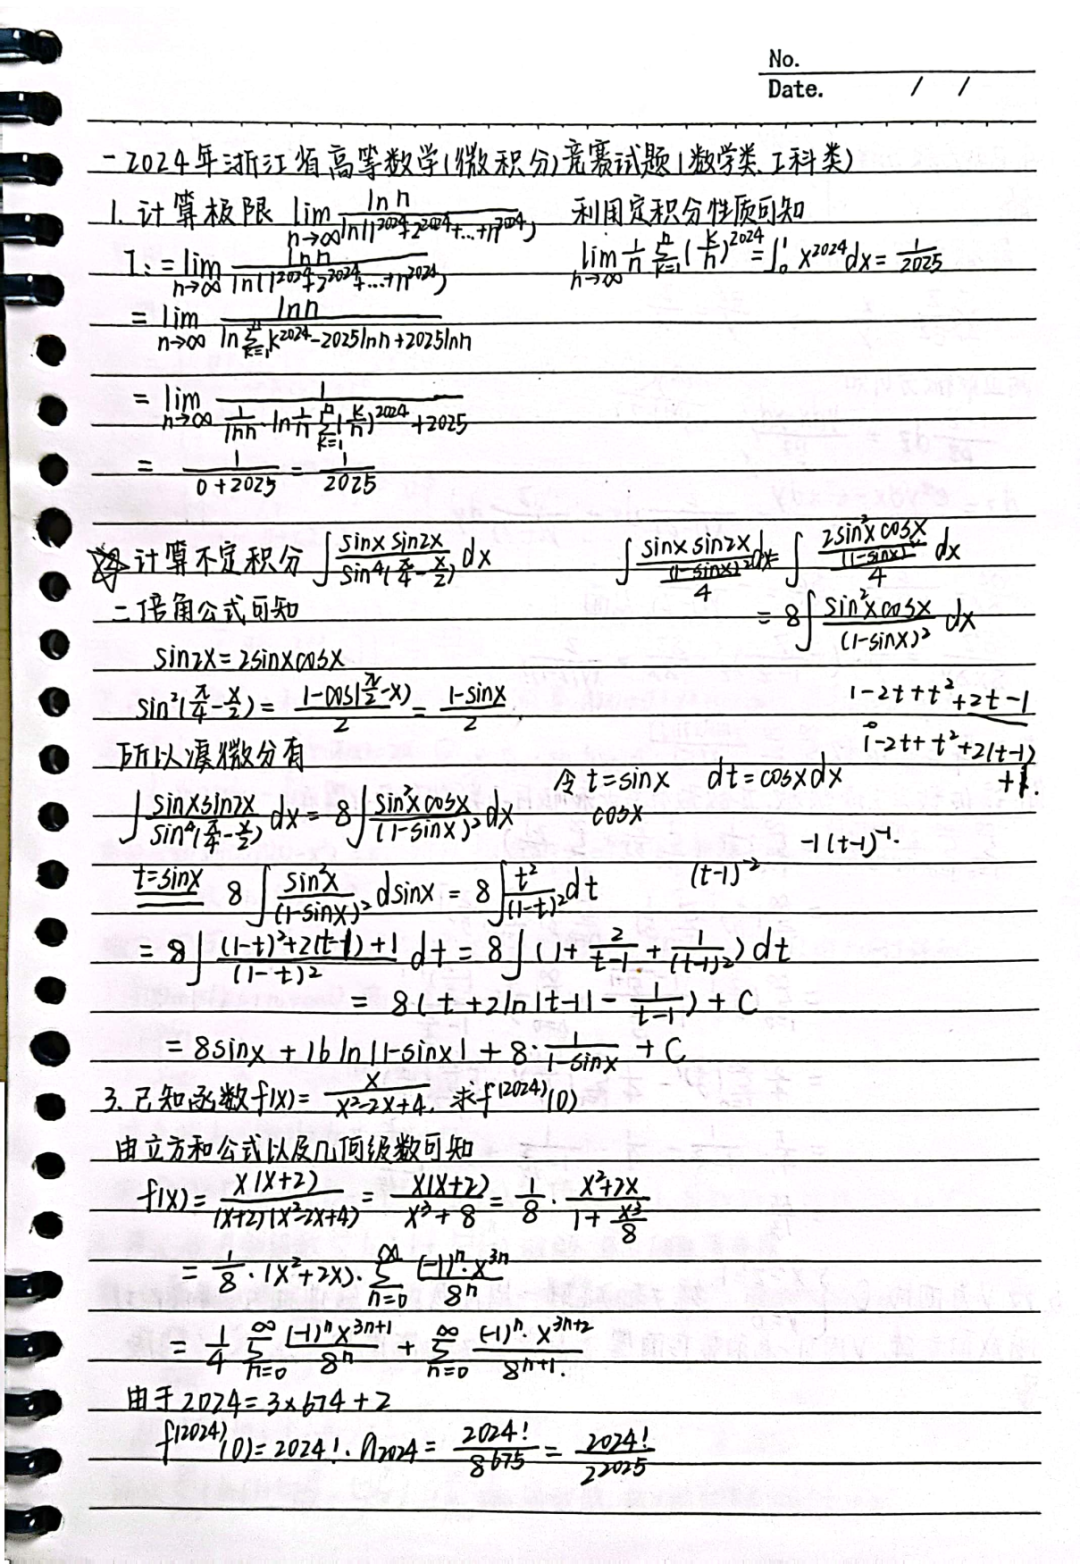 No.
Date. / /
一 2024年浙江省高等数学(微积分)竞赛试题(数学类、工科类)
1. 计算极限 lim_{n→∞} ln n / ln(1^2024+2^2024+…+n^2024) 利用定积分性质可知
I: = lim_{n→∞} ln n / ln(1^2024+2^2024+…+n^2024) lim_{n→∞} 1/n Σ_{k=1}^n (k/n)^2024 = ∫_0^1 x^2024 dx = 1/2025
= lim_{n→∞} ln n / (ln Σ_{k=1}^n k^2024 - 2025 ln n + 2025 ln n)
= lim_{n→∞} 1 / (1/ln n · ln 1/n Σ_{k=1}^n (k/n)^2024 + 2025)
= 1/(0+2025) = 1/2025
计算不定积分 ∫ sinx sin2x / sin^4(π/4 - x/2) dx ∫ sinx sin2x / ((1-sinx)^2/4) dx = ∫ 2sin^2x cosx / ((1-sinx)^2/4) dx
二倍角公式可知 = 8∫ sin^2x cosx / (1-sinx)^2 dx
sin2x = 2sinxcosx
sin^2(π/4 - x/2) = (1-cos(π/2 - x))/2 = (1-sinx)/2 1-2t+t^2+2t-1
所以凑微分有 1-2t+t^2+2(t-1)
令 t=sinx dt=cosxdx +1.
∫ sinxsin2x / sin^4(π/4 - x/2) dx = 8∫ sin^2x cosx / (1-sinx)^2 dx cosx
-1(t-1)^-1.
t=sinx 8∫ sin^2x / (1-sinx)^2 dsinx = 8∫ t^2/(1-t)^2 dt (t-1)^-2
= 8∫ ((1-t)^2+2(t-1)+1) / (1-t)^2 dt = 8∫ (1 + 2/(t-1) + 1/(t-1)^2) dt
= 8(t+2ln|t-1| - 1/(t-1)) + C
= 8sinx + 16ln|1-sinx| + 8· 1/(1-sinx) + C
3. 已知函数f(x)= x/(x^2-2x+4). 求f^(2024)(0)
由立方和公式以及几何级数可知
f(x)= x(x+2) / (x+2)(x^2-2x+4) = x(x+2) / (x^3+8) = 1/8 · (x^2+2x) / (1+x^3/8)
= 1/8 · (x^2+2x) · Σ_{n=0}^∞ (-1)^n·x^3n / 8^n
= 1/4 Σ_{n=0}^∞ (-1)^n x^{3n+1} / 8^n + Σ_{n=0}^∞ (-1)^n · x^{3n+2} / 8^{n+1}.
由于2024=3×674+2
f^(2024)(0)=2024! · a_2024 = 2024!/8^675 = 2024!/2^2025